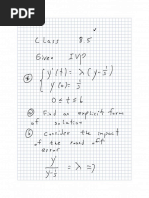 Class 8.5
Given IVP
{ y'(t) = λ (y - 1/3)
y(0) = 1/3
0 ≤ t ≤ 6
Find an explicit form
of solution
Consider the impact
of the round off
error
y' / (y - 1/3) = λ =>